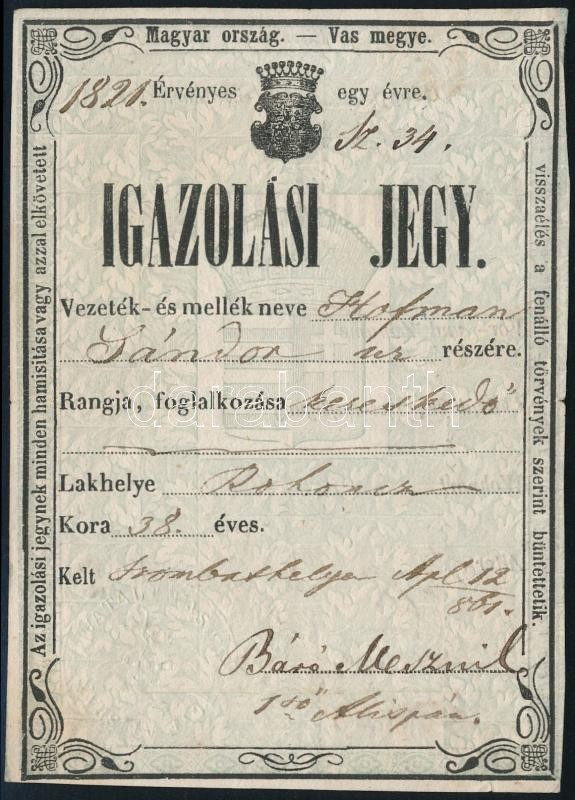 Magyar ország. — Vas megye.
1821. Érvényes egy évre.
Sz. 34.
IGAZOLÁSI JEGY.
Vezeték- és mellék neve Hofman
Sándor úr részére.
Rangja, foglalkozása kereskedő
Lakhelye Rohoncz
Kora 38. éves.
Kelt Szombathelyen Apl 12
861.
Báró Mesznil
1ső Alispán.
Az igazolási jegynek minden hamisitása vagy azzal elkövetett
visszaélés a fenálló törvények szerint büntettetik.
darabanth